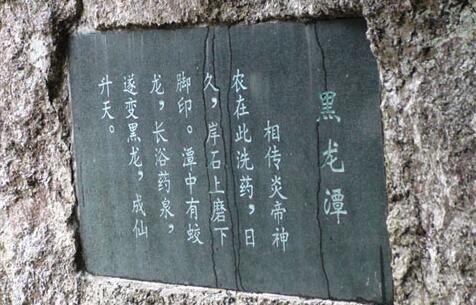 黑龙潭
相传炎帝神
农在此洗药，日
久，岸石上磨下
脚印。潭中有蛟
龙，长浴药泉，
遂变黑龙，成仙
升天。